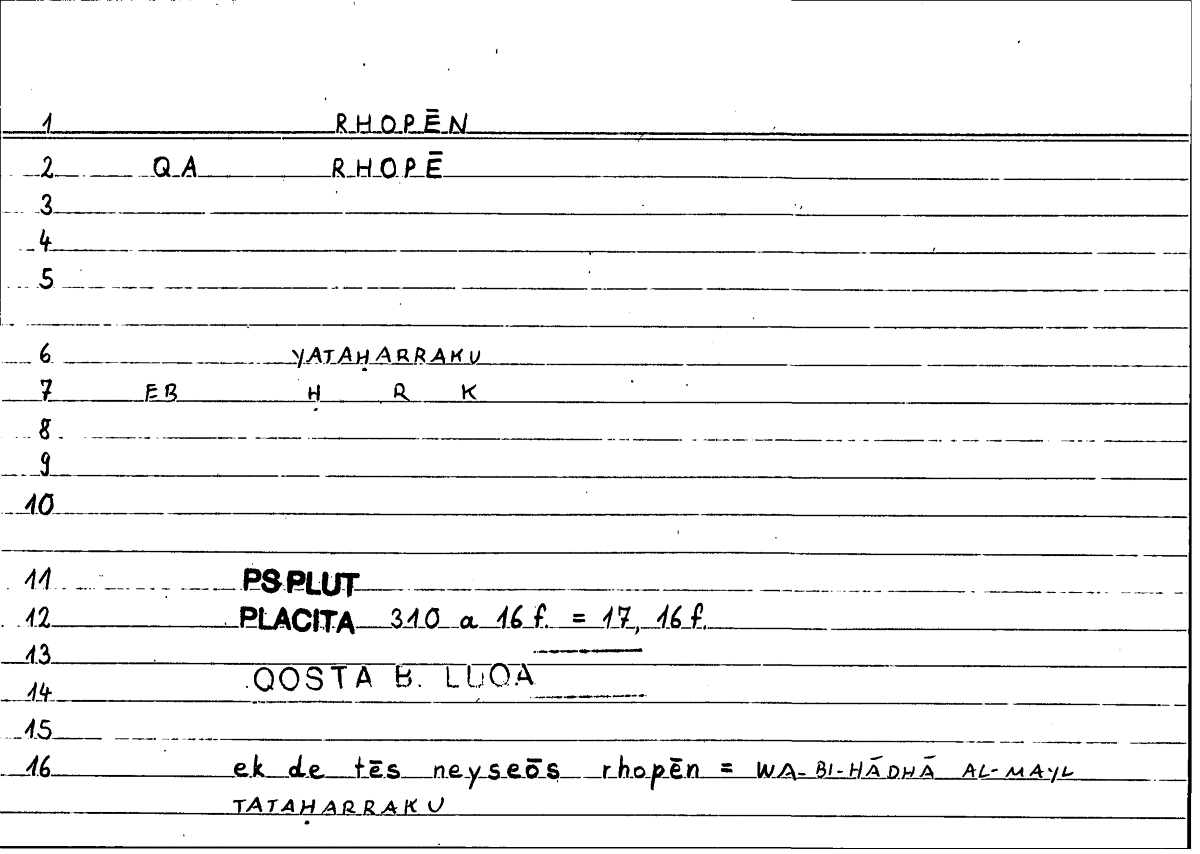 1 RHOPĒN
2 QA RHOPĒ
3
4
5
6 YATAḤARRAKU
7 EB Ḥ R K
8
9
10
11 PS PLUT
12 PLACITA 310 a 16 f. = 17, 16 f.
13
14 QOSTA B. LUQA
15
16 ek de tēs neyseōs rhopēn = WA-BI-HĀDHĀ AL-MAYL
TATAḤARRAKU